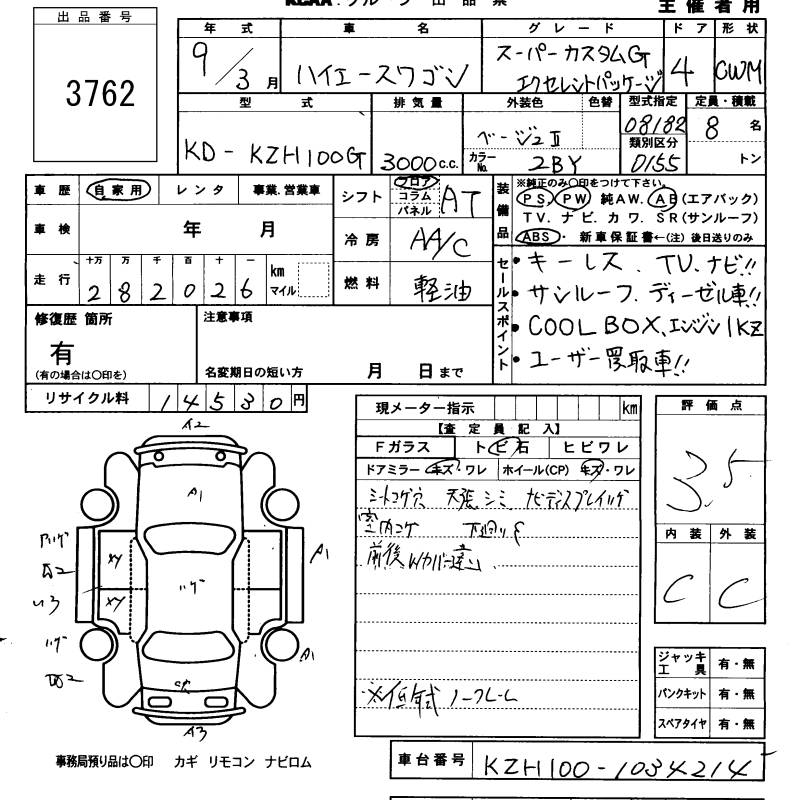 KCAA.グループ 出品票
主催者用
出品番号
3762
年式 車名 グレード ドア 形状
9/3月 ハイエースワゴン スーパーカスタムG エクセレントパッケージ 4 CWM
型式 排気量 外装色 色替 型式指定 定員・積載
KD-KZH100G 3000c.c. ベージュII 08182 8名
カラーNo. 2BY 類別区分 0155 トン
車歴 自家用 レンタ 事業.営業車
車検 年 月
走行 十万 万 千 百 十 一
282026 km マイル
シフト フロア コラム パネル AT
冷房 AA/C
燃料 軽油
装備品
※純正のみ○印をつけて下さい。
PS. PW 純AW. AB(エアバック)
TV. ナビ. カワ. SR(サンルーフ)
ABS・ 新車保証書←(注) 後日送りのみ
セールスポイント
・キーレス、TV.ナビ!!
・サンルーフ.ディーゼル車!!
・COOL BOX、エンジン1KZ
・ユーザー買取車!!
修復歴 箇所
有
(有の場合は○印を)
注意事項
名変期日の短い方 月 日まで
リサイクル料 14530円
現メーター指示 km
【査定員記入】
Fガラス トビ石 ヒビワレ
ドアミラー キズ・ワレ ホイール(CP) キズ・ワレ
シートコゲ穴 天張シミ ナビディスプレイ
室内コゲ 下廻りS
前後Wカバー違い
※低年式 ノークレーム
評価点
3.5
内装 外装
C C
ジャッキ工具 有・無
パンクキット 有・無
スペアタイヤ 有・無
A2
A1
A1
XY
XY
ハゲ
A1
A3
事務局預り品は○印 カギ リモコン ナビロム
車台番号 KZH100-1034214